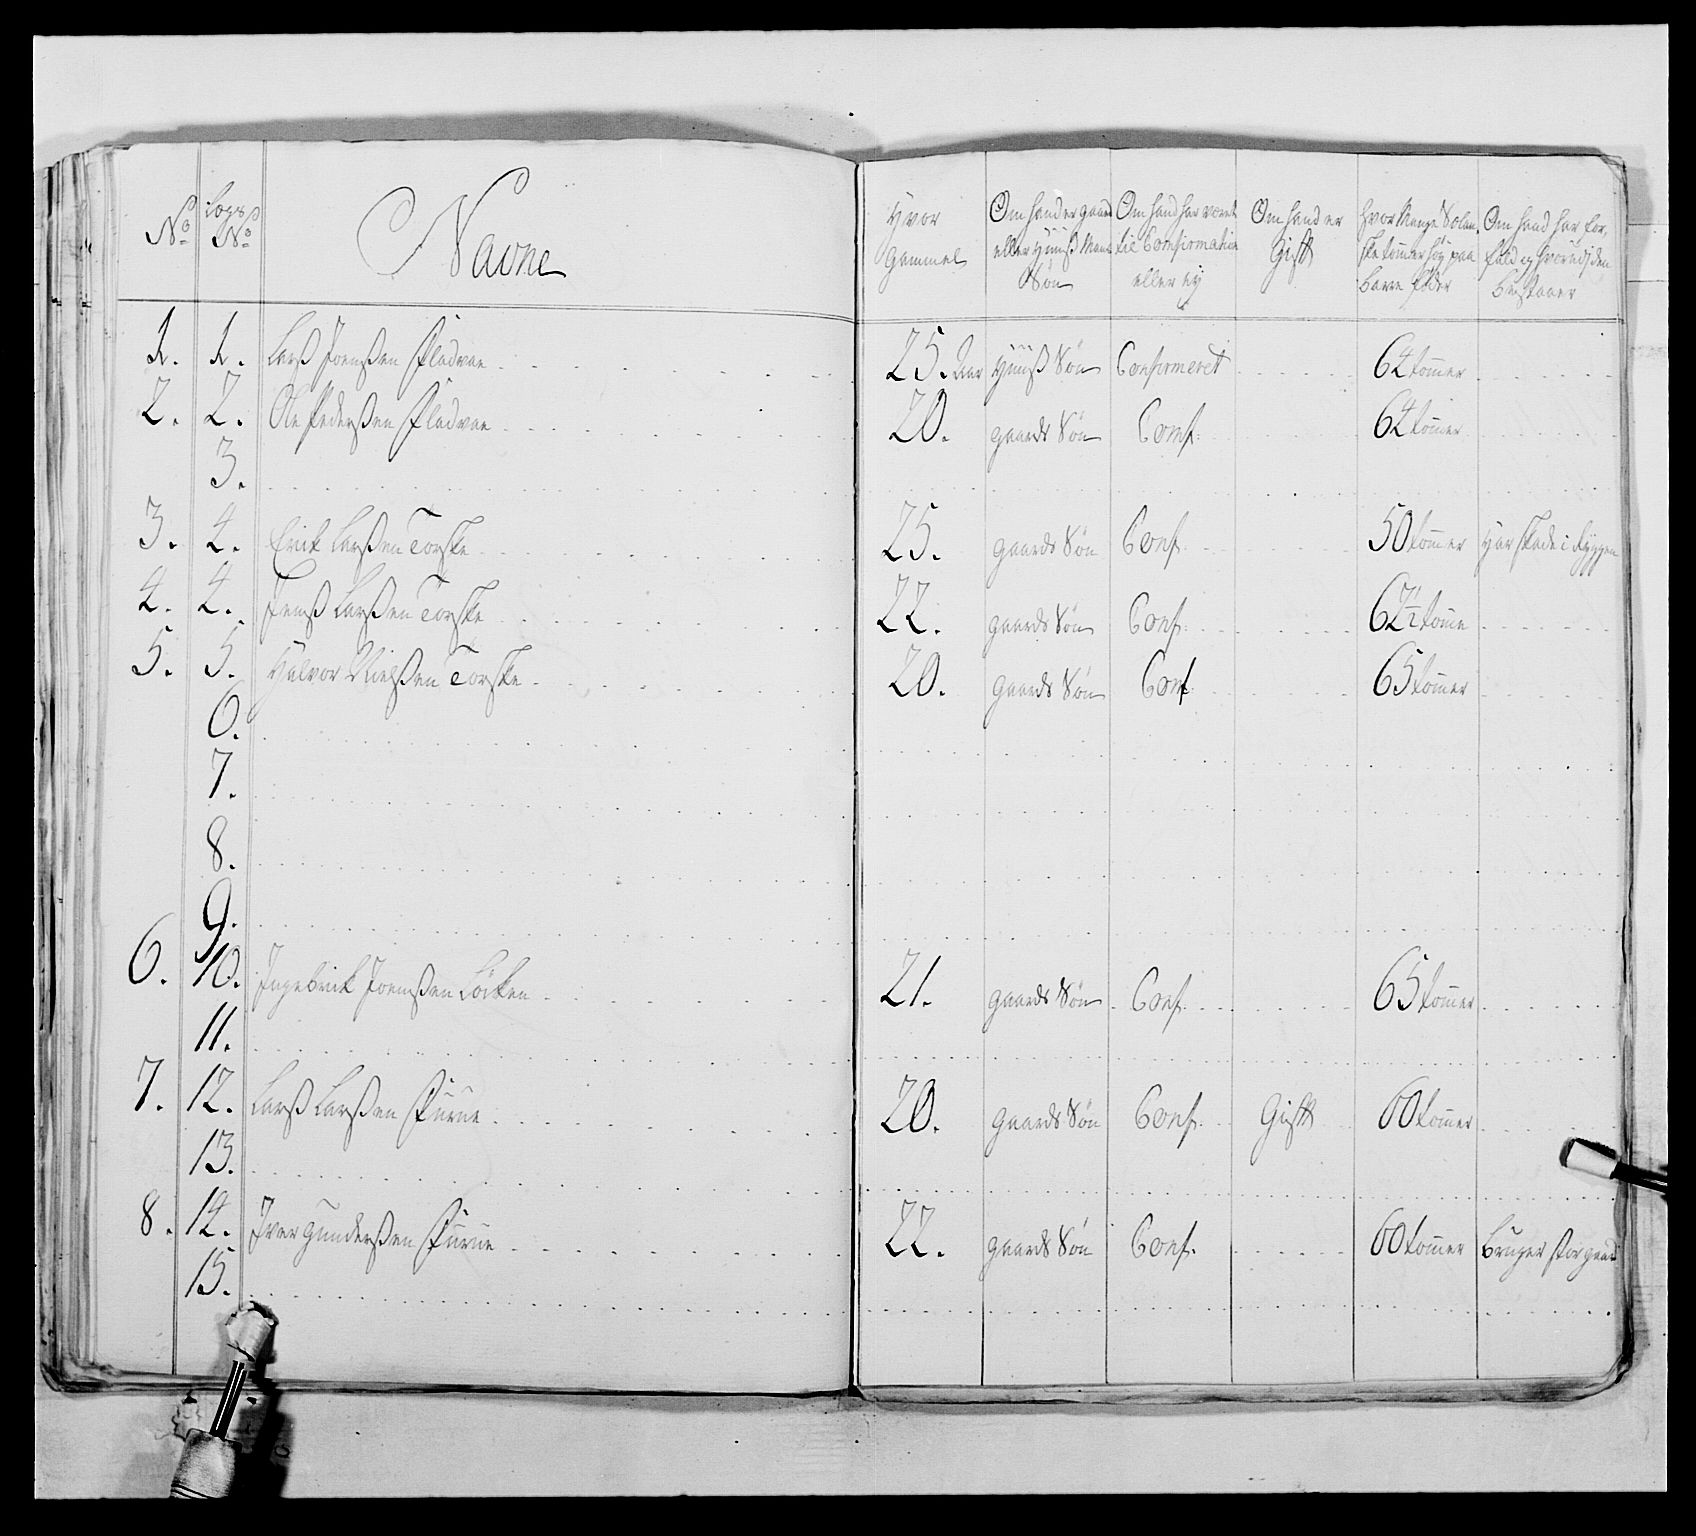 No Logs No Navne Hvor Gammel Om hand er gaard eller Huuss Mands Søn Om hand har været til Confirmation eller ey Om hand er Gift Hvor Mange Solenske tommer høy paa barre föder Om hand har forfald og hvorudj den bestaaer
1. 1. Larss Joenssen Fladvae 25. Aar Huuss Søn Confirmeret 64 tommer
2. 2. Ole Pederssen Fladvae 20. gaards Søn Conf. 64 tommer
3.
3. 4. Erick Larssen Torske 25. gaards Søn Conf. 50 tommer Har skade i Ryggen
4. 4. Jenss Larssen Torske 22. gaards Søn Conf. 62 1/2 tomme
5. 5. Halvor Nielssen Torske 20. gaards Søn Conf 65 tommer
6.
7.
8.
9.
6. 10. Ingebrick Joenssen Löcken 21. gaards Søn Conf. 65 tommer
11.
7. 12. Larss Larssen 20. gaards Søn Conf. Gift 60 tommer
13.
8. 14. Iver Gunderssen 22. gaards Søn Conf. 60 tommer bruger stor gaard
15.